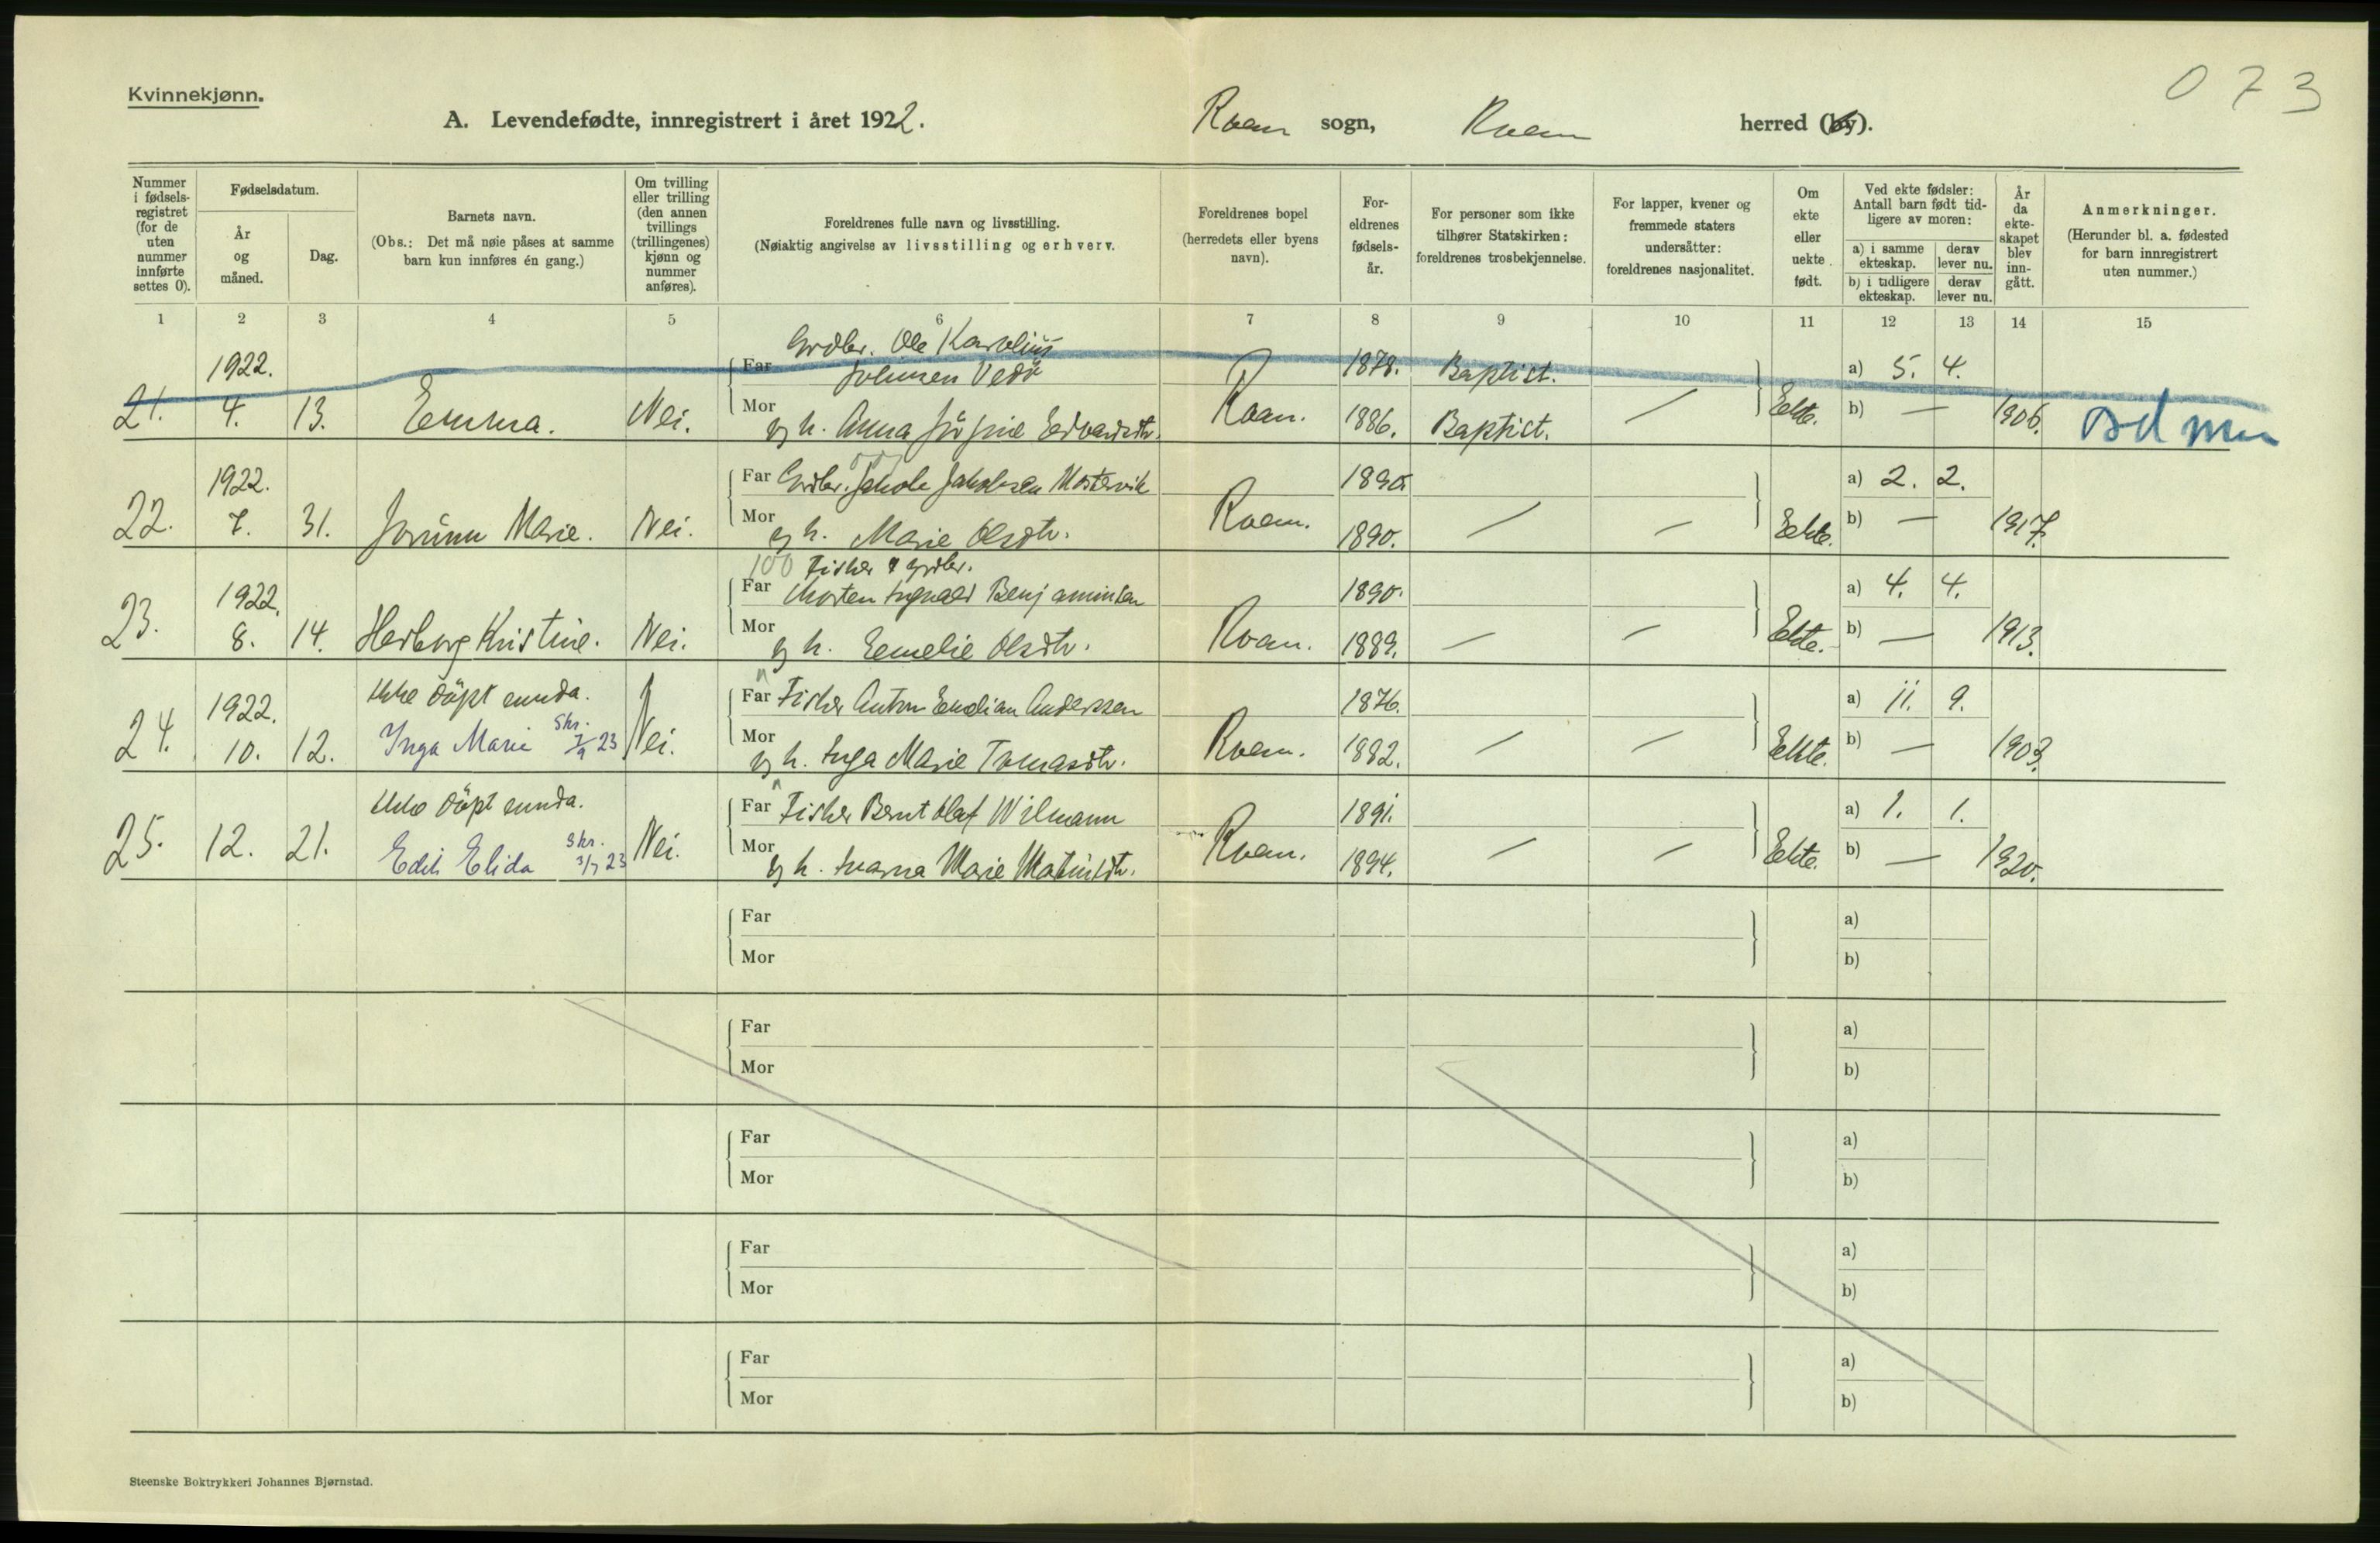 073
Kvinnekjønn.
A. Levendefødte, innregistrert i året 1922. Roan sogn, Roan herred (by).
Nummer i fødsels-registret (for de uten nummer innførte settes 0).
Fødselsdatum.
År og måned.
Dag.
Barnets navn.
(Obs.: Det må nøie påses at samme barn kun innføres én gang.)
Om tvilling eller trilling (den annen tvillings (trillingenes) kjønn og nummer anføres).
Foreldrenes fulle navn og livsstilling.
(Nøiaktig angivelse av livsstilling og erhverv.
Foreldrenes bopel (herredets eller byens navn).
For-eldrenes fødsels-år.
For personer som ikke tilhører Statskirken: foreldrenes trosbekjennelse.
For lapper, kvener og fremmede staters undersåtter: foreldrenes nasjonalitet.
Om ekte eller uekte født.
Ved ekte fødsler: Antall barn født tid-ligere av moren:
a) i samme ekteskap.
derav lever nu.
b) i tidligere ekteskap.
derav lever nu.
År da ekte-skapet blev inn-gått.
Anmerkninger.
(Herunder bl. a. fødested for barn innregistrert uten nummer.)
1 2 3 4 5 6 7 8 9 10 11 12 13 14 15
Grdbr. Ole Karolius
1922. Far Johnsen Vedø 1878. Baptist. a) 5. 4.
21. 4. 13. Emma. Nei. Mor og h. Anna Jørgine Edvardsdtr. Roan. 1886. Baptist. — Ekte. b) — 1906.
1922. Far Grdbr. Jakob Jakobsen Mostervik 1890. a) 2. 2.
22. 7. 31. Jorunn Marie. Nei. Mor og h. Marie Olsdtr. Roan. 1890. — — Ekte. b) — 1917.
100 Fisker & grdbr.
1922. Far Morten Ingvald Benjaminsen 1890. a) 4. 4.
23. 8. 14. Herborg Kristine. Nei. Mor og h. Emelie Olsdtr. Roan. 1889. — — Ekte. b) — 1913.
Ikke døpt enda.
1922. Far Fisker Anton Emelian Anderssen 1876. a) 11. 9.
24. 10. 12. Inga Marie Skr. 7/9 23 Nei. Mor og h. Inga Marie Tomasdtr. Roan. 1882. — — Ekte. b) — 1903.
Ikke døpt enda.
Far Fisker Bernt Olaf Wilmann 1891. a) 1. 1.
25. 12. 21. Edit Elida Skr. 3/7 23 Nei. Mor og h. Ivarna Marie Matinsdtr. Roan. 1894. — — Ekte. b) — 1920.
Far a)
Mor b)
Far a)
Mor b)
Far a)
Mor b)
Far a)
Mor b)
Far a)
Mor b)
Steenske Boktrykkeri Johannes Bjørnstad.